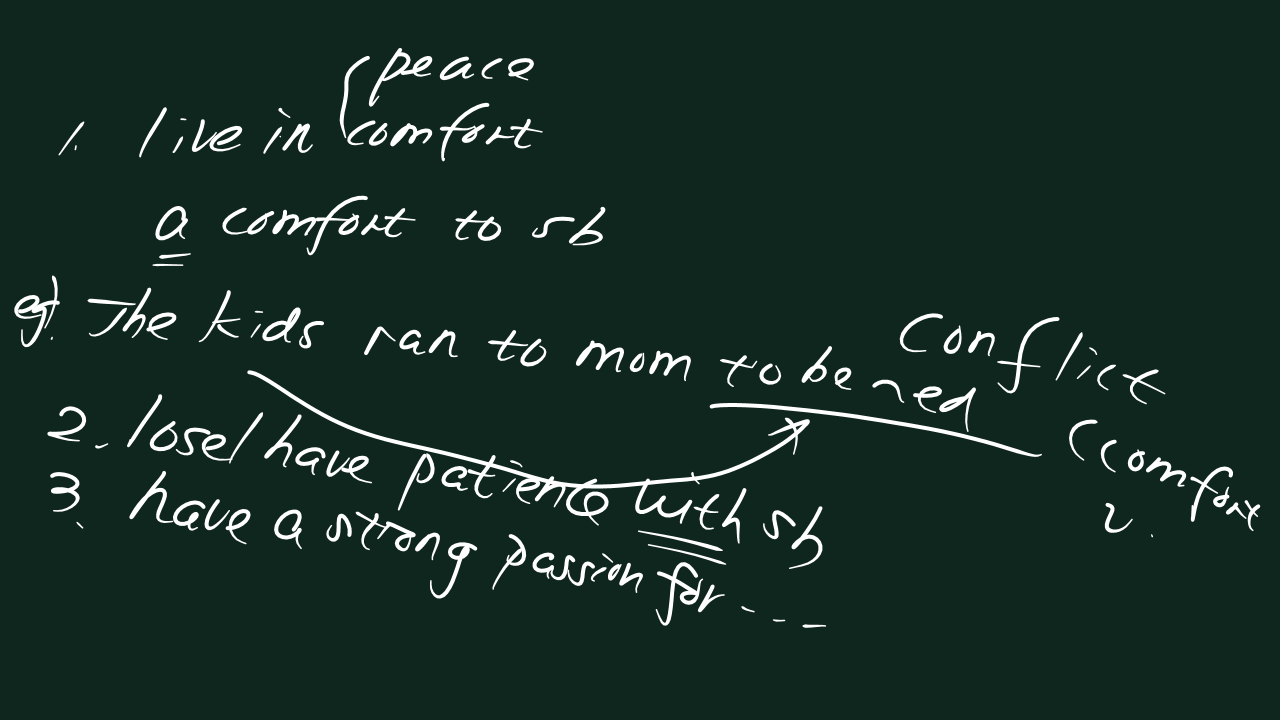 peace
1. live in comfort
a comfort to sb
eg. The kids ran to mom to be ~ed
Conflict
(comfort
v.
2. lose/have patience with sb
3. have a strong passion for ...